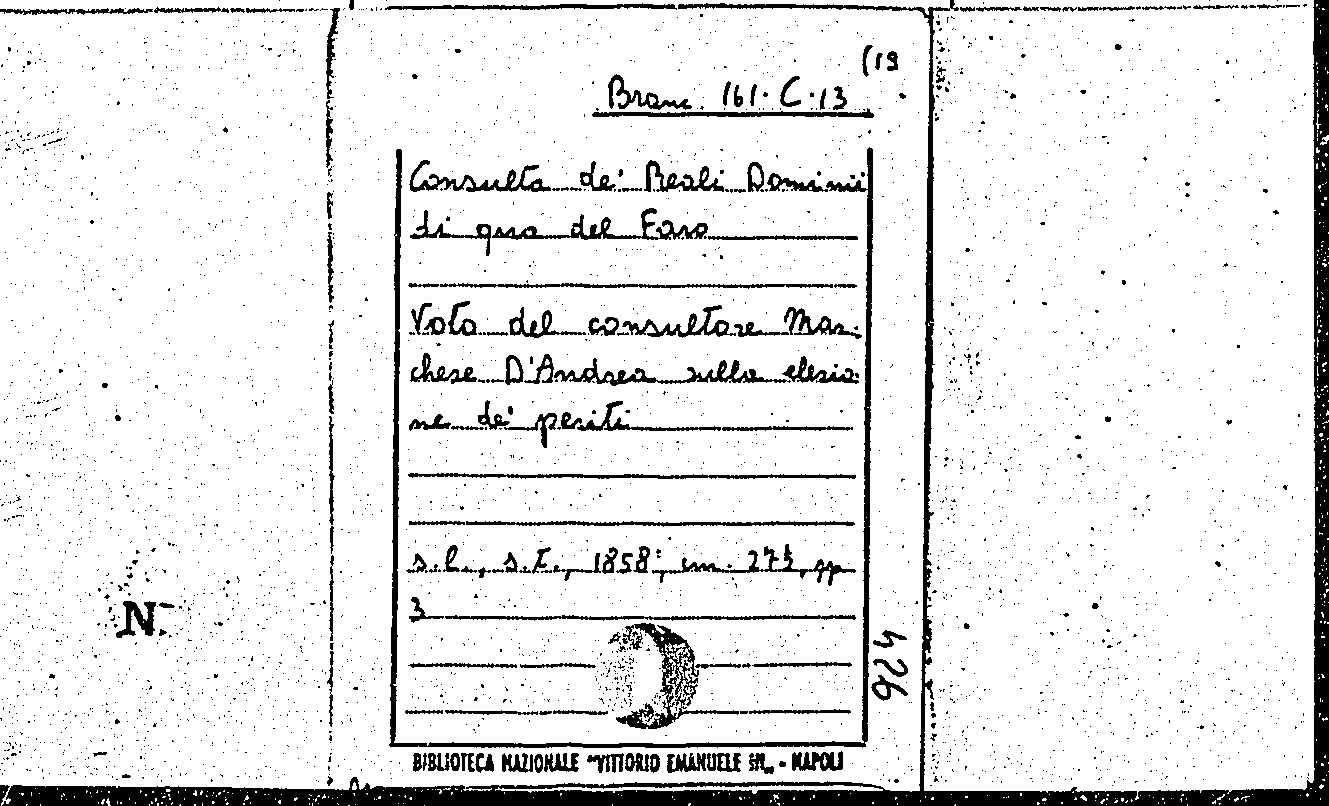 (19
Branc 161. C. 13
Consulta de' Reali Dominii
di qua del Faro
Voto del consultore Mar-
chese D'Andrea sulla elezio-
ne de' periti
s.l., s.t., 1858; cm. 27½, pp
3
924
N
BIBLIOTECA NAZIONALE "VITTORIO EMANUELE III„ - NAPOLI